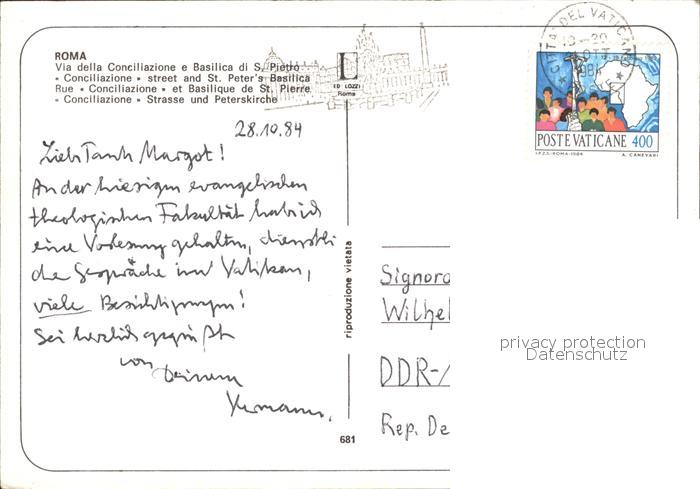 ROMA
Via della Conciliazione e Basilica di S. Pietro
« Conciliazione » street and St. Peter's Basilica
Rue « Conciliazione » et Basilique de St. Pierre
« Conciliazione » Strasse und Peterskirche
L
ED LOZZI
Roma
CITTA DEL VATICANO
19-20
OTT
POSTE VATICANE 400
I.P.Z.S.-ROMA-1984 A. CANEVARI
28.10.84
Liebe Tante Margot!
An der hiesigen evangelischen
theologischen Fakultät hab ich
eine Vorlesung gehalten, dienstli
che Gespräche im Vatikan,
viele Besichtigungen!
Sei herzlich gegrüßt
von Deinem
Hermann.
riproduzione vietata
681
Signora
Wilhel
DDR-
Rep. De
privacy protection
Datenschutz